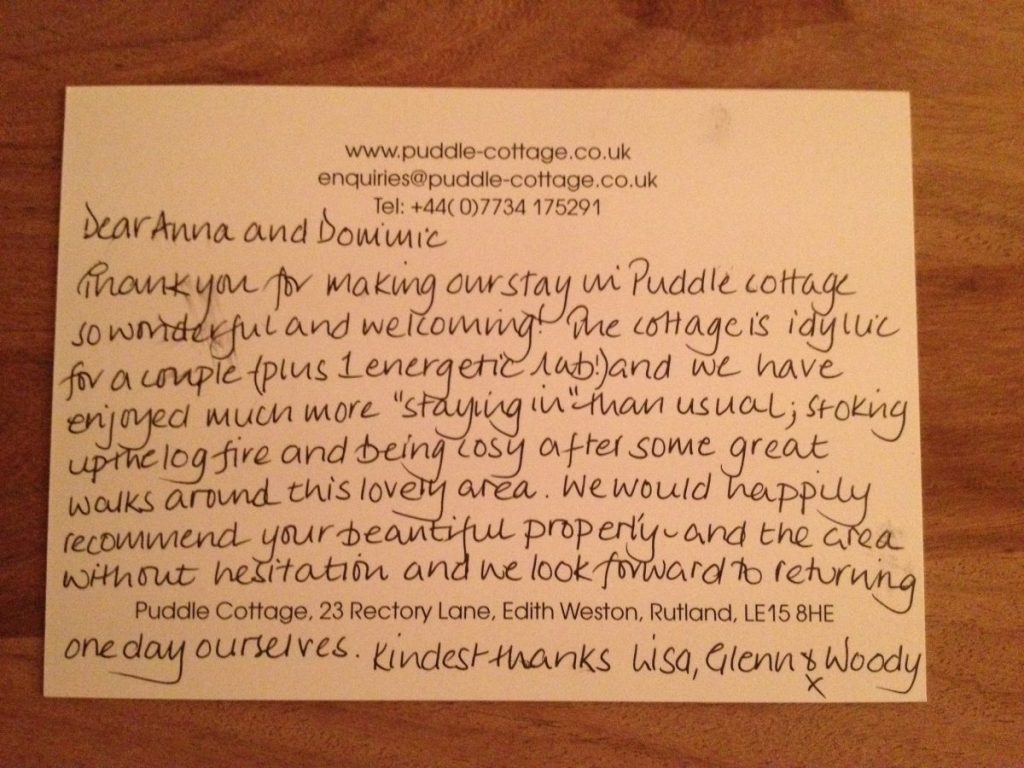 www.puddle-cottage.co.uk
enquiries@puddle-cottage.co.uk
Tel: +44(0)7734 175291
Dear Anna and Dominic
Thank you for making our stay in Puddle cottage
so wonderful and welcoming! The cottage is idyllic
for a couple (plus 1 energetic lab!) and we have
enjoyed much more "staying in" than usual; stoking
up the log fire and being cosy after some great
walks around this lovely area. We would happily
recommend your beautiful property and the area
without hesitation and we look forward to returning
Puddle Cottage, 23 Rectory Lane, Edith Weston, Rutland, LE15 8HE
one day ourselves. Kindest thanks Lisa, Glenn & Woody
x